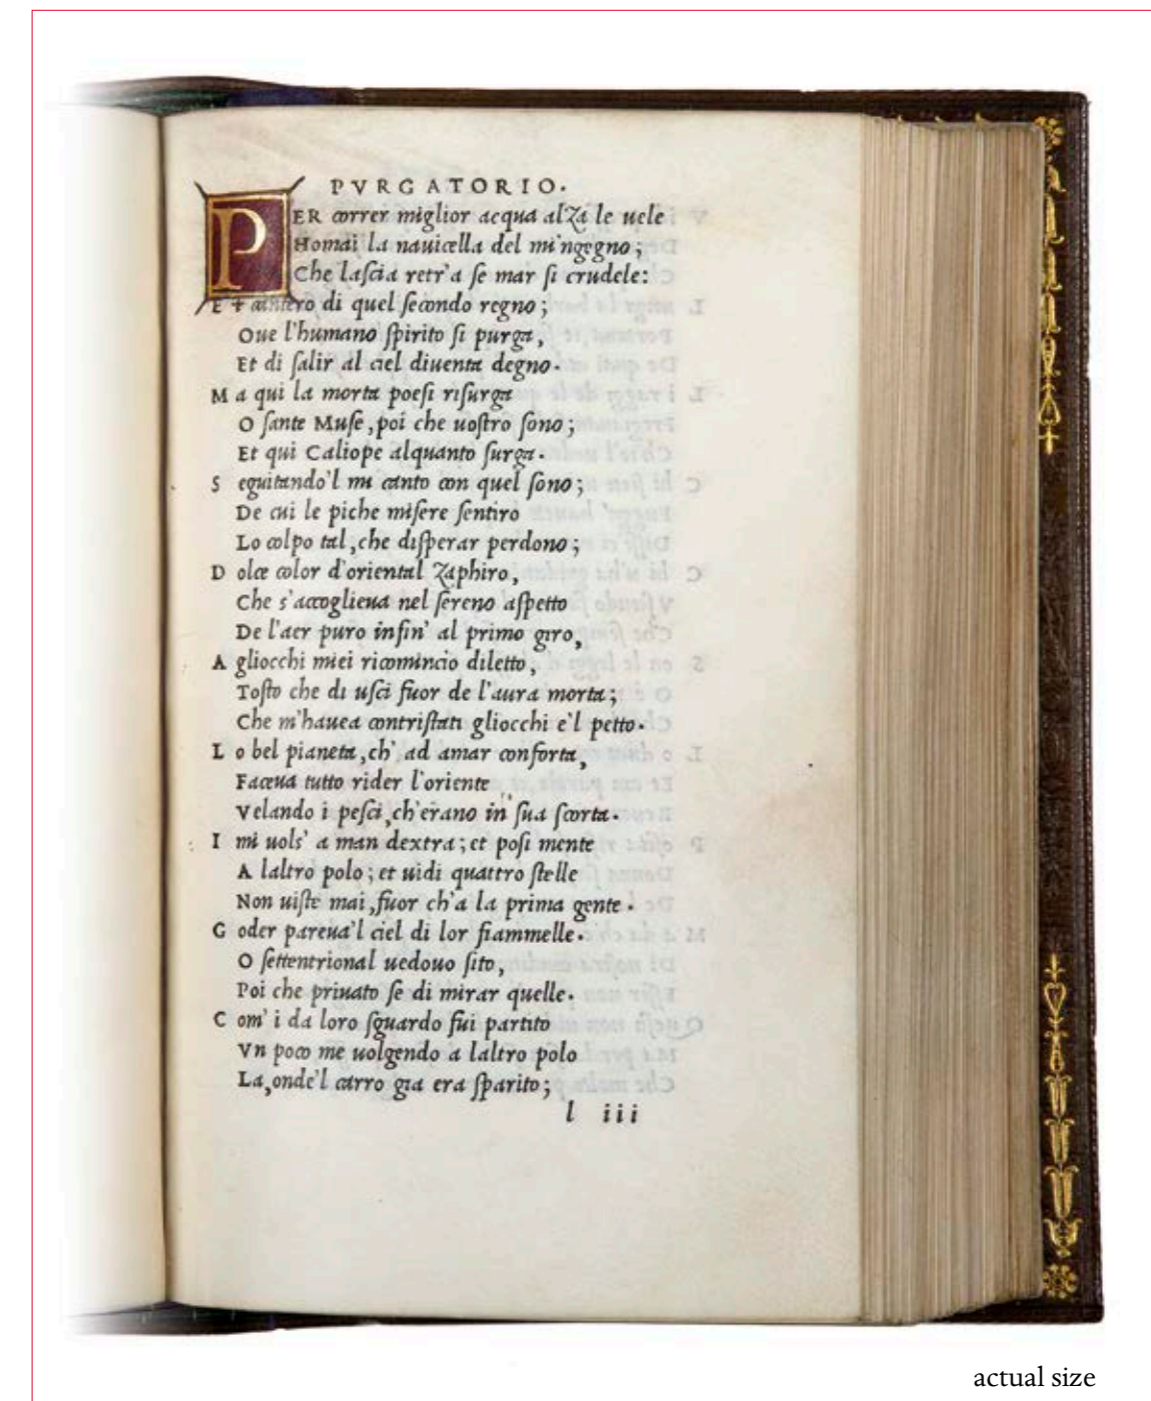 PVRGATORIO.
PER correr miglior acqua alza le uele
Homai la nauicella del mi'ngegno;
Che lascia retr'a se mar si crudele:
E t cantero di quel secondo regno;
Oue l'humano spirito si purga,
Et di salir al ciel diuenta degno.
M a qui la morta poesi risurga
O sante Muse, poi che uostro sono;
Et qui Caliope alquanto surga.
S eguitando'l mi canto con quel sono;
De cui le piche misere sentiro
Lo colpo tal, che disperar perdono;
D olce color d'oriental zaphiro,
Che s'accoglieua nel sereno aspetto
De l'aer puro infin' al primo giro,
A gliocchi miei ricomincio diletto,
Tosto che di usci fuor de l'aura morta;
Che m'hauea contristati gliocchi e'l petto.
L o bel pianeta, ch' ad amar conforta,
Faceua tutto rider l'oriente
Velando i pesci, ch'erano in sua scorta.
I mi uols' a man dextra; et posi mente
A laltro polo; et uidi quattro stelle
Non uiste mai, fuor ch'a la prima gente.
G oder pareua'l ciel di lor fiammelle.
O settentrional uedouo sito,
Poi che priuato se di mirar quelle.
C om' i da loro sguardo fui partito
Vn poco me uolgendo a laltro polo
La, onde'l carro gia era sparito;
l iii
actual size